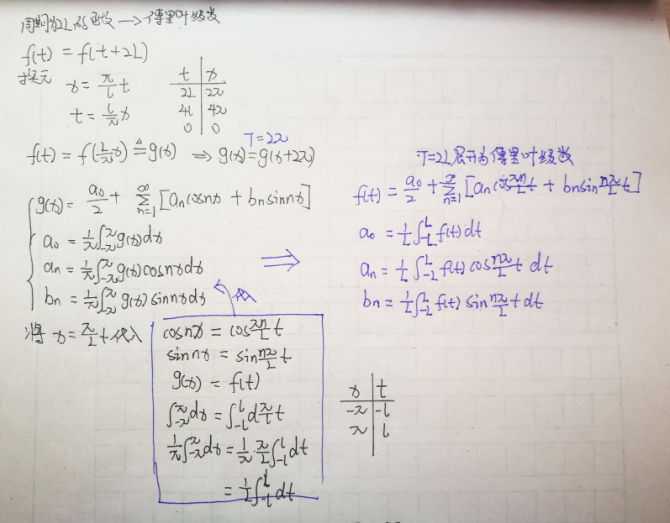 周期为2L的函数 → 傅里叶级数
f(t) = f(t+2L)
换元 x = π/L t
t = L/π x
t | x
2L | 2π
4L | 4π
0 | 0
f(t) = f(L/π x) ≜ g(x) ⇒ g(x) = g(x+2π)
T=2π
g(x) = a₀/2 + ∑_{n=1}^{∞} [aₙcosnx + bₙsinnx]
a₀ = 1/π ∫_{-π}^{π} g(x)dx
aₙ = 1/π ∫_{-π}^{π} g(x)cosnxdx
bₙ = 1/π ∫_{-π}^{π} g(x)sinnxdx
⇒
将 x = π/L t 代入
代入
cosnx = cos πn/L t
sinnx = sin nπ/L t
g(x) = f(t)
∫_{-π}^{π} dx = ∫_{-L}^{L} d π/L t
1/π ∫_{-π}^{π} dx = 1/π · π/L ∫_{-L}^{L} dt
= 1/L ∫_{-L}^{L} dt
T=2L展开为傅里叶级数
f(t) = a₀/2 + ∑_{n=1}^{∞} [aₙcos πn/L t + bₙsin nπ/L t]
a₀ = 1/L ∫_{-L}^{L} f(t)dt
aₙ = 1/L ∫_{-L}^{L} f(t)cos nπ/L t dt
bₙ = 1/L ∫_{-L}^{L} f(t)sin nπ/L t dt
x | t
-π | -L
π | L